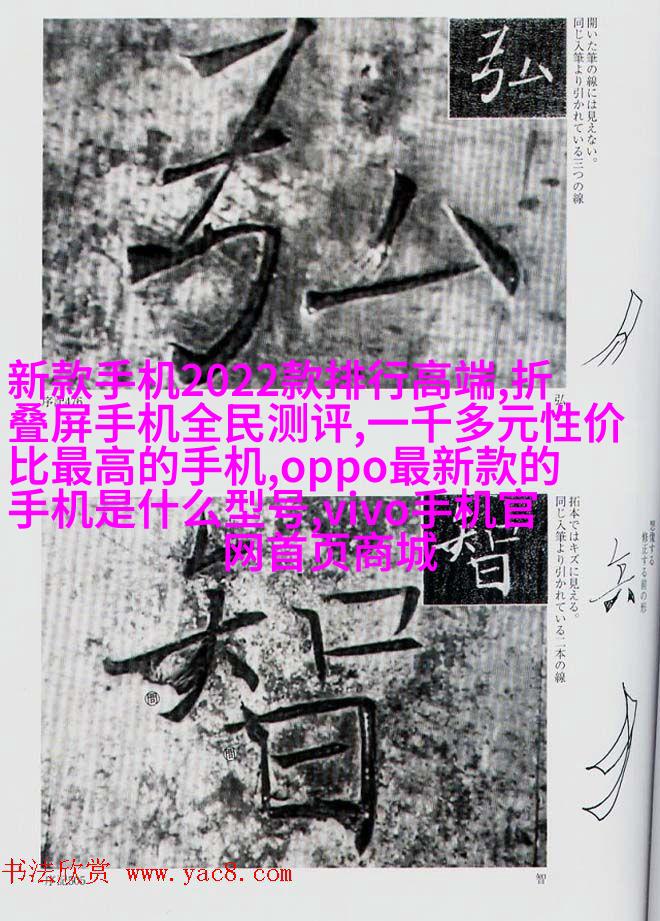 弘
開いた筆の線には見えない。
同じ入筆より引かれている三つの線
弘
新款手机2022款排行高端,折
叠屏手机全民测评,一千多元性价
比最高的手机,oppo最新款的
手机是什么型号,vivo手机官
网首页商城
弘
智
拓本ではキズに見える。
同じ入筆より引かれている二本の線
想像する
修正する前の形
智
书法欣赏 www.yac8.com
序記505
智